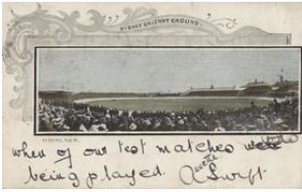 SYDNEY CRICKET GROUND.
SYDNEY, N.S.W.
when of our test matches were
being played. Swift